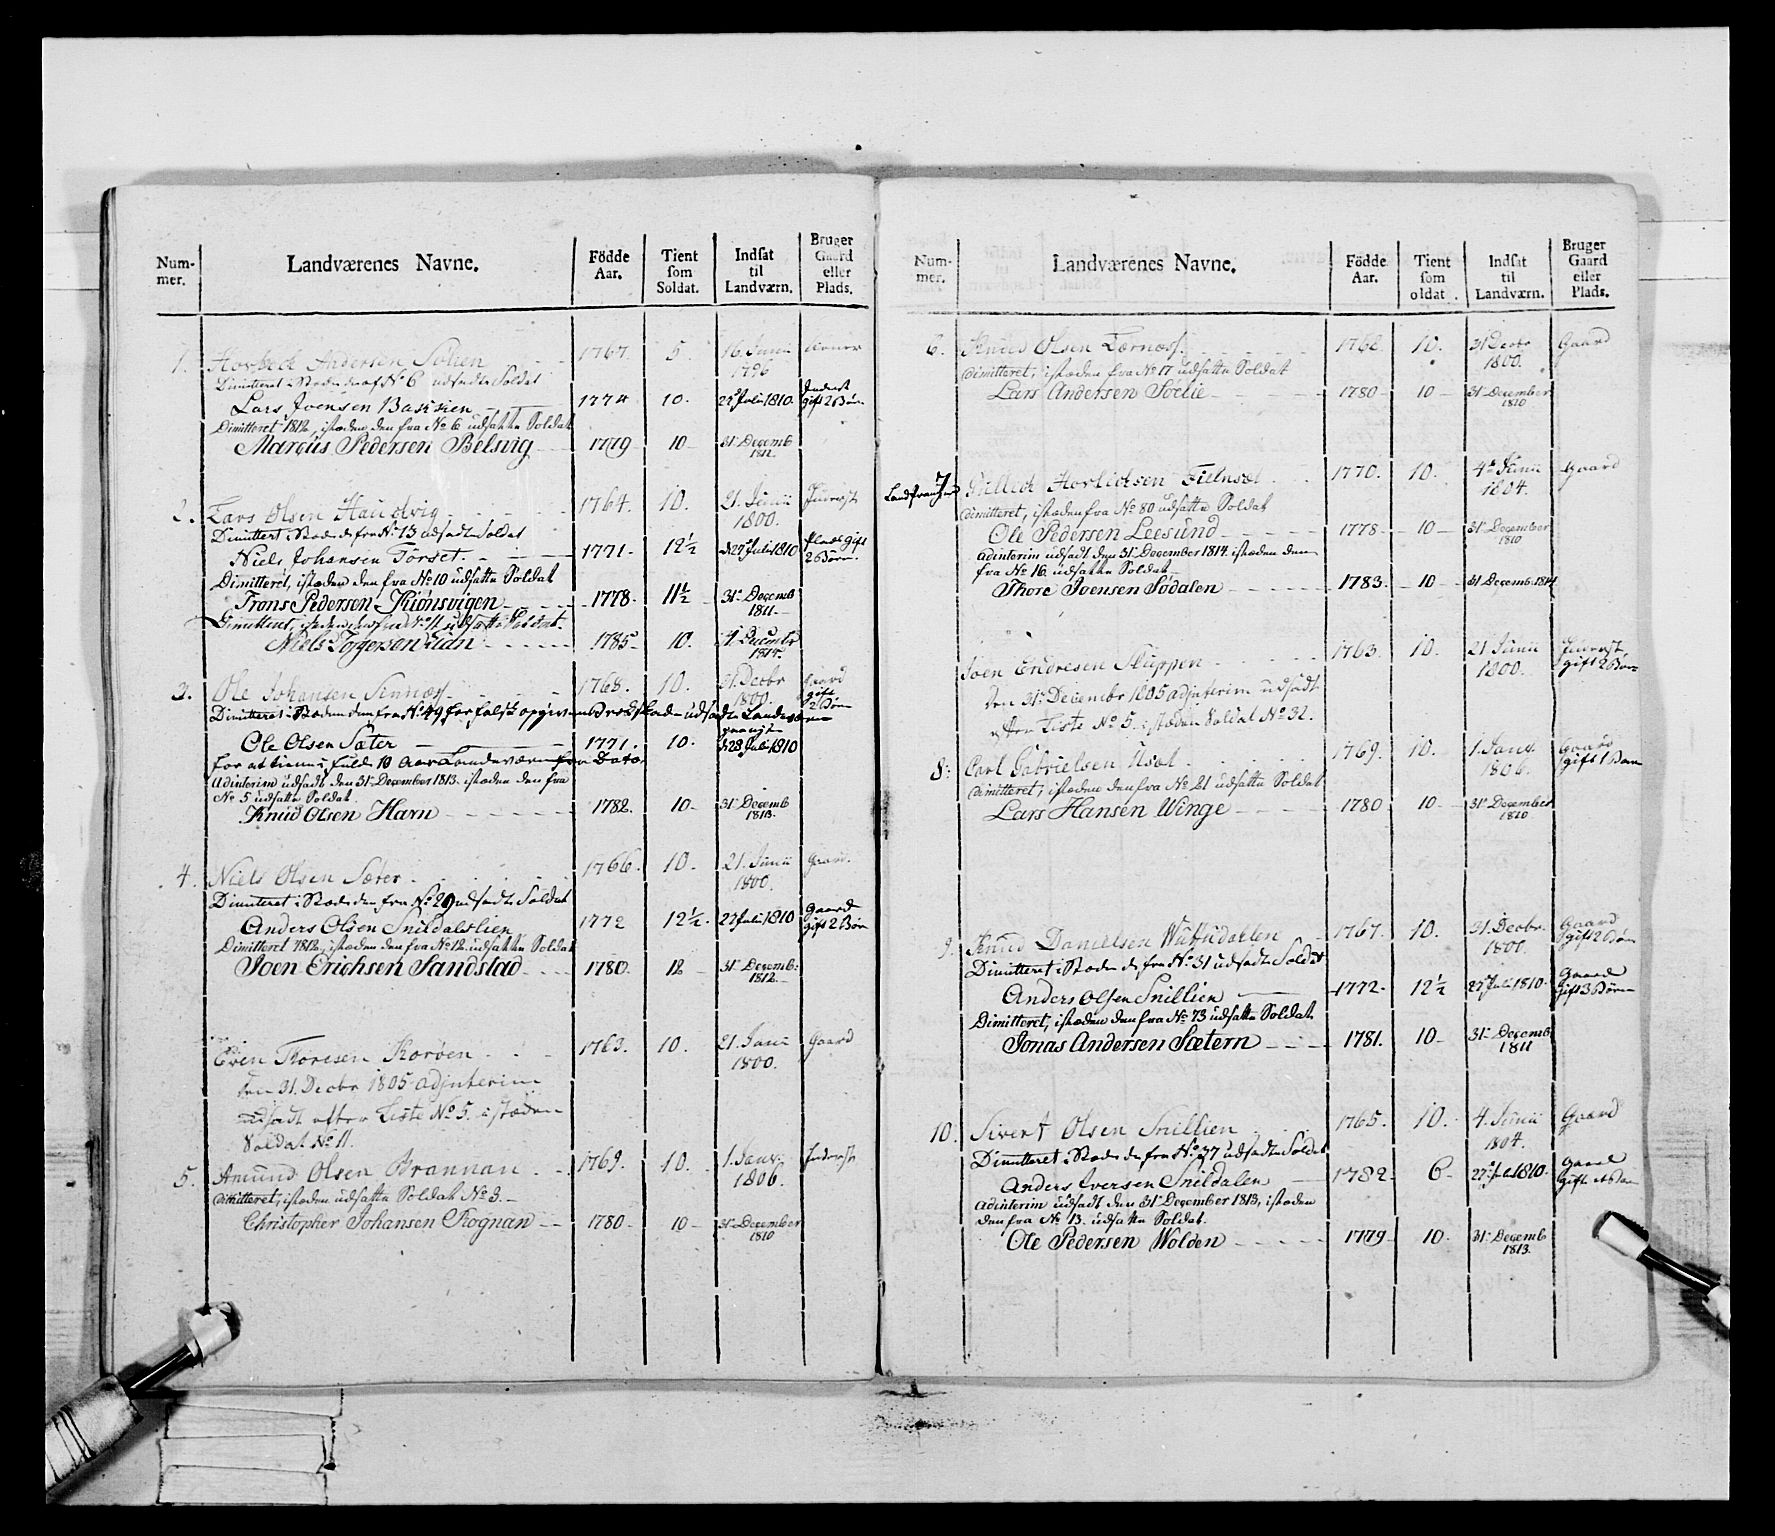 Num-
mer.
Landværenes Navne.
Födde
Aar.
Tient
som
Soldat.
Indsat
til
Landværn.
Bruger
Gaard
eller
Plads.
1. Andersen 1767. 5. 16. Junii
1796
Dimitteret i Stæden af No 6 udsadte Soldat
Lars Joensen 1774 10. 27 Juli 1810. Inderst
gift 2 Børn
Dimitteret 1812, istæden den fra No 6 udsatte Soldat
Marcus Pedersen Belsvig 1779 10 31 Decemb
1812.
2. Lars Olsen Haudvig 1764. 10. 21. Junii Inderst
1800.
Dimittert i Stæden fra No 13 udsadte Soldat
Niels Johansen Torset. 1771. 12½ d 27 Juli 1810 Plads gift
2 Børn
Dimitteret, istæden den fra No 10 udsatte Soldat
Frons Pedersen Kiønsvigen 1778. 11½ 31 Decemb
1811.
Dimitteret, istæden den fra No 11 udsatte Soldat.
Niels Torgersen 1785 10. 31 Decembr
1814.
3. Ole Johansen 1768. 10. 21. Decbr Gaard
1800. gift
2 Børn
Dimitteret i Stæden den fra No 49 for falsk udsadte Landværn
Ole Olsen Sæter 1771. 10. d 28 Juli 1810
for at tienne fulde 10 Aar Landeværn fra Dato.
Adinterim udsadt den 31 December 1813. istæden den fra
No 5 udsatte Soldat.
Knud Olsen Havn 1782. 10 31 Decemb
1813.
4. Niels Olsen Sæter. 1766. 10. 21. Junii Gaard.
1800.
Dimitteret i Stæden den fra No 29 udsadte Soldat
Anders Olsen Snildalslien 1772 12½. 27 Juli 1810 Gaard
gift 2 Børn
Dimitteret 1812, istæden den fra No 12 udsatte Soldat
Joen Erichsen Sandstad 1780. 12 31 Decemb:
1812.
Even Thoresen Korøen 1763. 10. 21. Junii Gaard
1800.
den 31. Decbr 1805 adjnterim
udsadt efter Liste No 5. istæden
Soldat No 11.
5. Amund Olsen 1769. 10. 1. Janv. Inderst
1806.
Dimitteret, istæden udsatte Soldat No 3.
Christopher Johansen Rognan 1780 10 31 December
1810
Num-
mer.
Landværenes Navne.
Födde
Aar.
Tient
som
oldat.
Indsat
til
Landværn.
Bruger
Gaard
eller
Plads.
6. Knud Olsen 1762 10. 31 Decbr Gaard
1800.
Dimitteret, istæden fra No 17 udsatte Soldat
Lars Andersen Soelie 1780 10 31 December
1810
7 1770. 10. 4 Junii Gaard
1804.
Dimitteret, istæden fra No 80 udsatte Soldat
Ole Pedersen Leesund 1778 10 31 December
1810
Adinterim udsadt den 31 December 1814. istæden den
fra No 16 udsatte Soldat
Thore Joensen Sødalen 1783. 10 31 Decemb: 1814
Joen Endresen Skuppen 1763. 10. 21 Junii Inderst,
1800. gift 2 Børn
den 31 Decembr 1805 adjnterim udsadt
efter Liste No 5. istæden Soldat No 32.
8. Carl Gabrielsen 1769. 10. 1. Janv. Gaard
1806. gift 1 Barn
Dimitteret, istæden den fra No 21 udsatte Soldat
Lars Hansen Winge 1780 10 31 December
1810
9. Knud Danielsen 1767. 10. 31. Decbr. Gaard
1800. gift 2 Børn
Dimitteret i Stæden fra No 31 udsadte Soldat
Anders Olsen Snillien 1772 12½ 27 Juli 1810. Gaard
gift 3 Børn
Dimitteret, istæden den fra No 73 udsatte Soldat
Jonas Andersen Sætern 1781. 10 31 Decemb
1811
10. Sivert Olsen Snillien 1765. 10. 4. Junii Gaard
1804.
Dimitteret i Stæden fra No 37 udsadte Soldat
Anders Iversen Snildalen 1782 6 27 Juli 1810. Gaard
Adinterim udsadt den 31 December 1813, istæden
den fra No 13. udsatte Soldat.
Ole Pedersen Wolden 1779 10. 31 Decemb
1813.